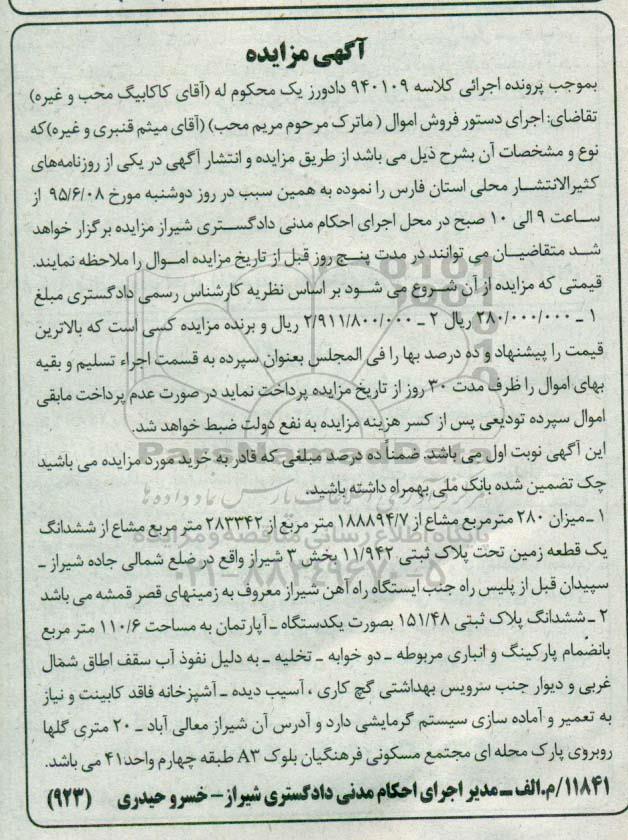 آگهی مزایده
بموجب پرونده اجرائی کلاسه ۹۴۰۱۰۹ دادورز یک محکوم له (آقای کاکابیگ محب و غیره)
تقاضای: اجرای دستور فروش اموال ( ماترک مرحوم مریم محب) (آقای میثم قنبری و غیره)که
نوع و مشخصات آن بشرح ذیل می باشد از طریق مزایده و انتشار آگهی در یکی از روزنامه‌های
کثیرالانتشار محلی استان فارس را نموده به همین سبب در روز دوشنبه مورخ ۹۵/۶/۰۸ از
ساعت ۹ الی ۱۰ صبح در محل اجرای احکام مدنی دادگستری شیراز مزایده برگزار خواهد
شد متقاضیان می توانند در مدت پنج روز قبل از تاریخ مزایده اموال را ملاحظه نمایند.
قیمتی که مزایده از آن شروع می شود بر اساس نظریه کارشناس رسمی دادگستری مبلغ
۱ ـ ۲۸۰/۰۰۰/۰۰۰ ریال ۲ ـ ۲/۹۱۱/۸۰۰/۰۰۰ ریال و برنده مزایده کسی است که بالاترین
قیمت را پیشنهاد و ده درصد بها را فی المجلس بعنوان سپرده به قسمت اجراء تسلیم و بقیه
بهای اموال را ظرف مدت ۳۰ روز از تاریخ مزایده پرداخت نماید در صورت عدم پرداخت مابقی
اموال سپرده تودیعی پس از کسر هزینه مزایده به نفع دولت ضبط خواهد شد.
این آگهی نوبت اول می باشد. ضمناً ده درصد مبلغی که قادر به خرید مورد مزایده می باشید
چک تضمین شده بانک ملی بهمراه داشته باشید.
۱ ـ میزان ۲۸۰ مترمربع مشاع از ۱۸۸۸۹۴/۷ متر مربع از ۲۸۳۳۴۲ متر مربع مشاع از ششدانگ
یک قطعه زمین تحت پلاک ثبتی ۱۱/۹۴۲ بخش ۳ شیراز واقع در ضلع شمالی جاده شیراز ـ
سپیدان قبل از پلیس راه جنب ایستگاه راه آهن شیراز معروف به زمینهای قصر قمشه می باشد
۲ ـ ششدانگ پلاک ثبتی ۱۵۱/۴۸ بصورت یکدستگاه ـ آپارتمان به مساحت ۱۱۰/۶ متر مربع
بانضمام پارکینگ و انباری مربوطه ـ دو خوابه ـ تخلیه ـ به دلیل نفوذ آب سقف اطاق شمال
غربی و دیوار جنب سرویس بهداشتی گچ کاری ، آسیب دیده ـ آشپزخانه فاقد کابینت و نیاز
به تعمیر و آماده سازی سیستم گرمایشی دارد و آدرس آن شیراز معالی آباد ـ ۲۰ متری گلها
روبروی پارک محله ای مجتمع مسکونی فرهنگیان بلوک A۳ طبقه چهارم واحد۴۱ می باشد.
۱۱۸۴۱/م.الف ــ مدیر اجرای احکام مدنی دادگستری شیراز- خسرو حیدری (۹۲۳)
ParsNamadData
پایگاه اطلاع رسانی مناقصه و مزایده
۰۲۱-۸۸۳۴۹۶۷۰-۵